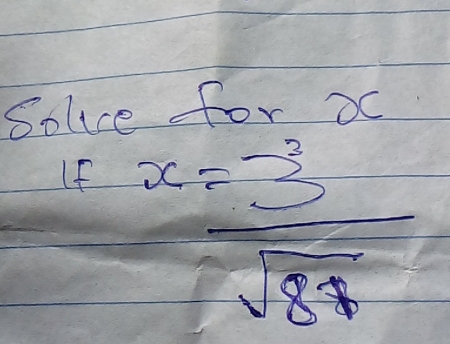 Solve for x
If x = 3³
√8